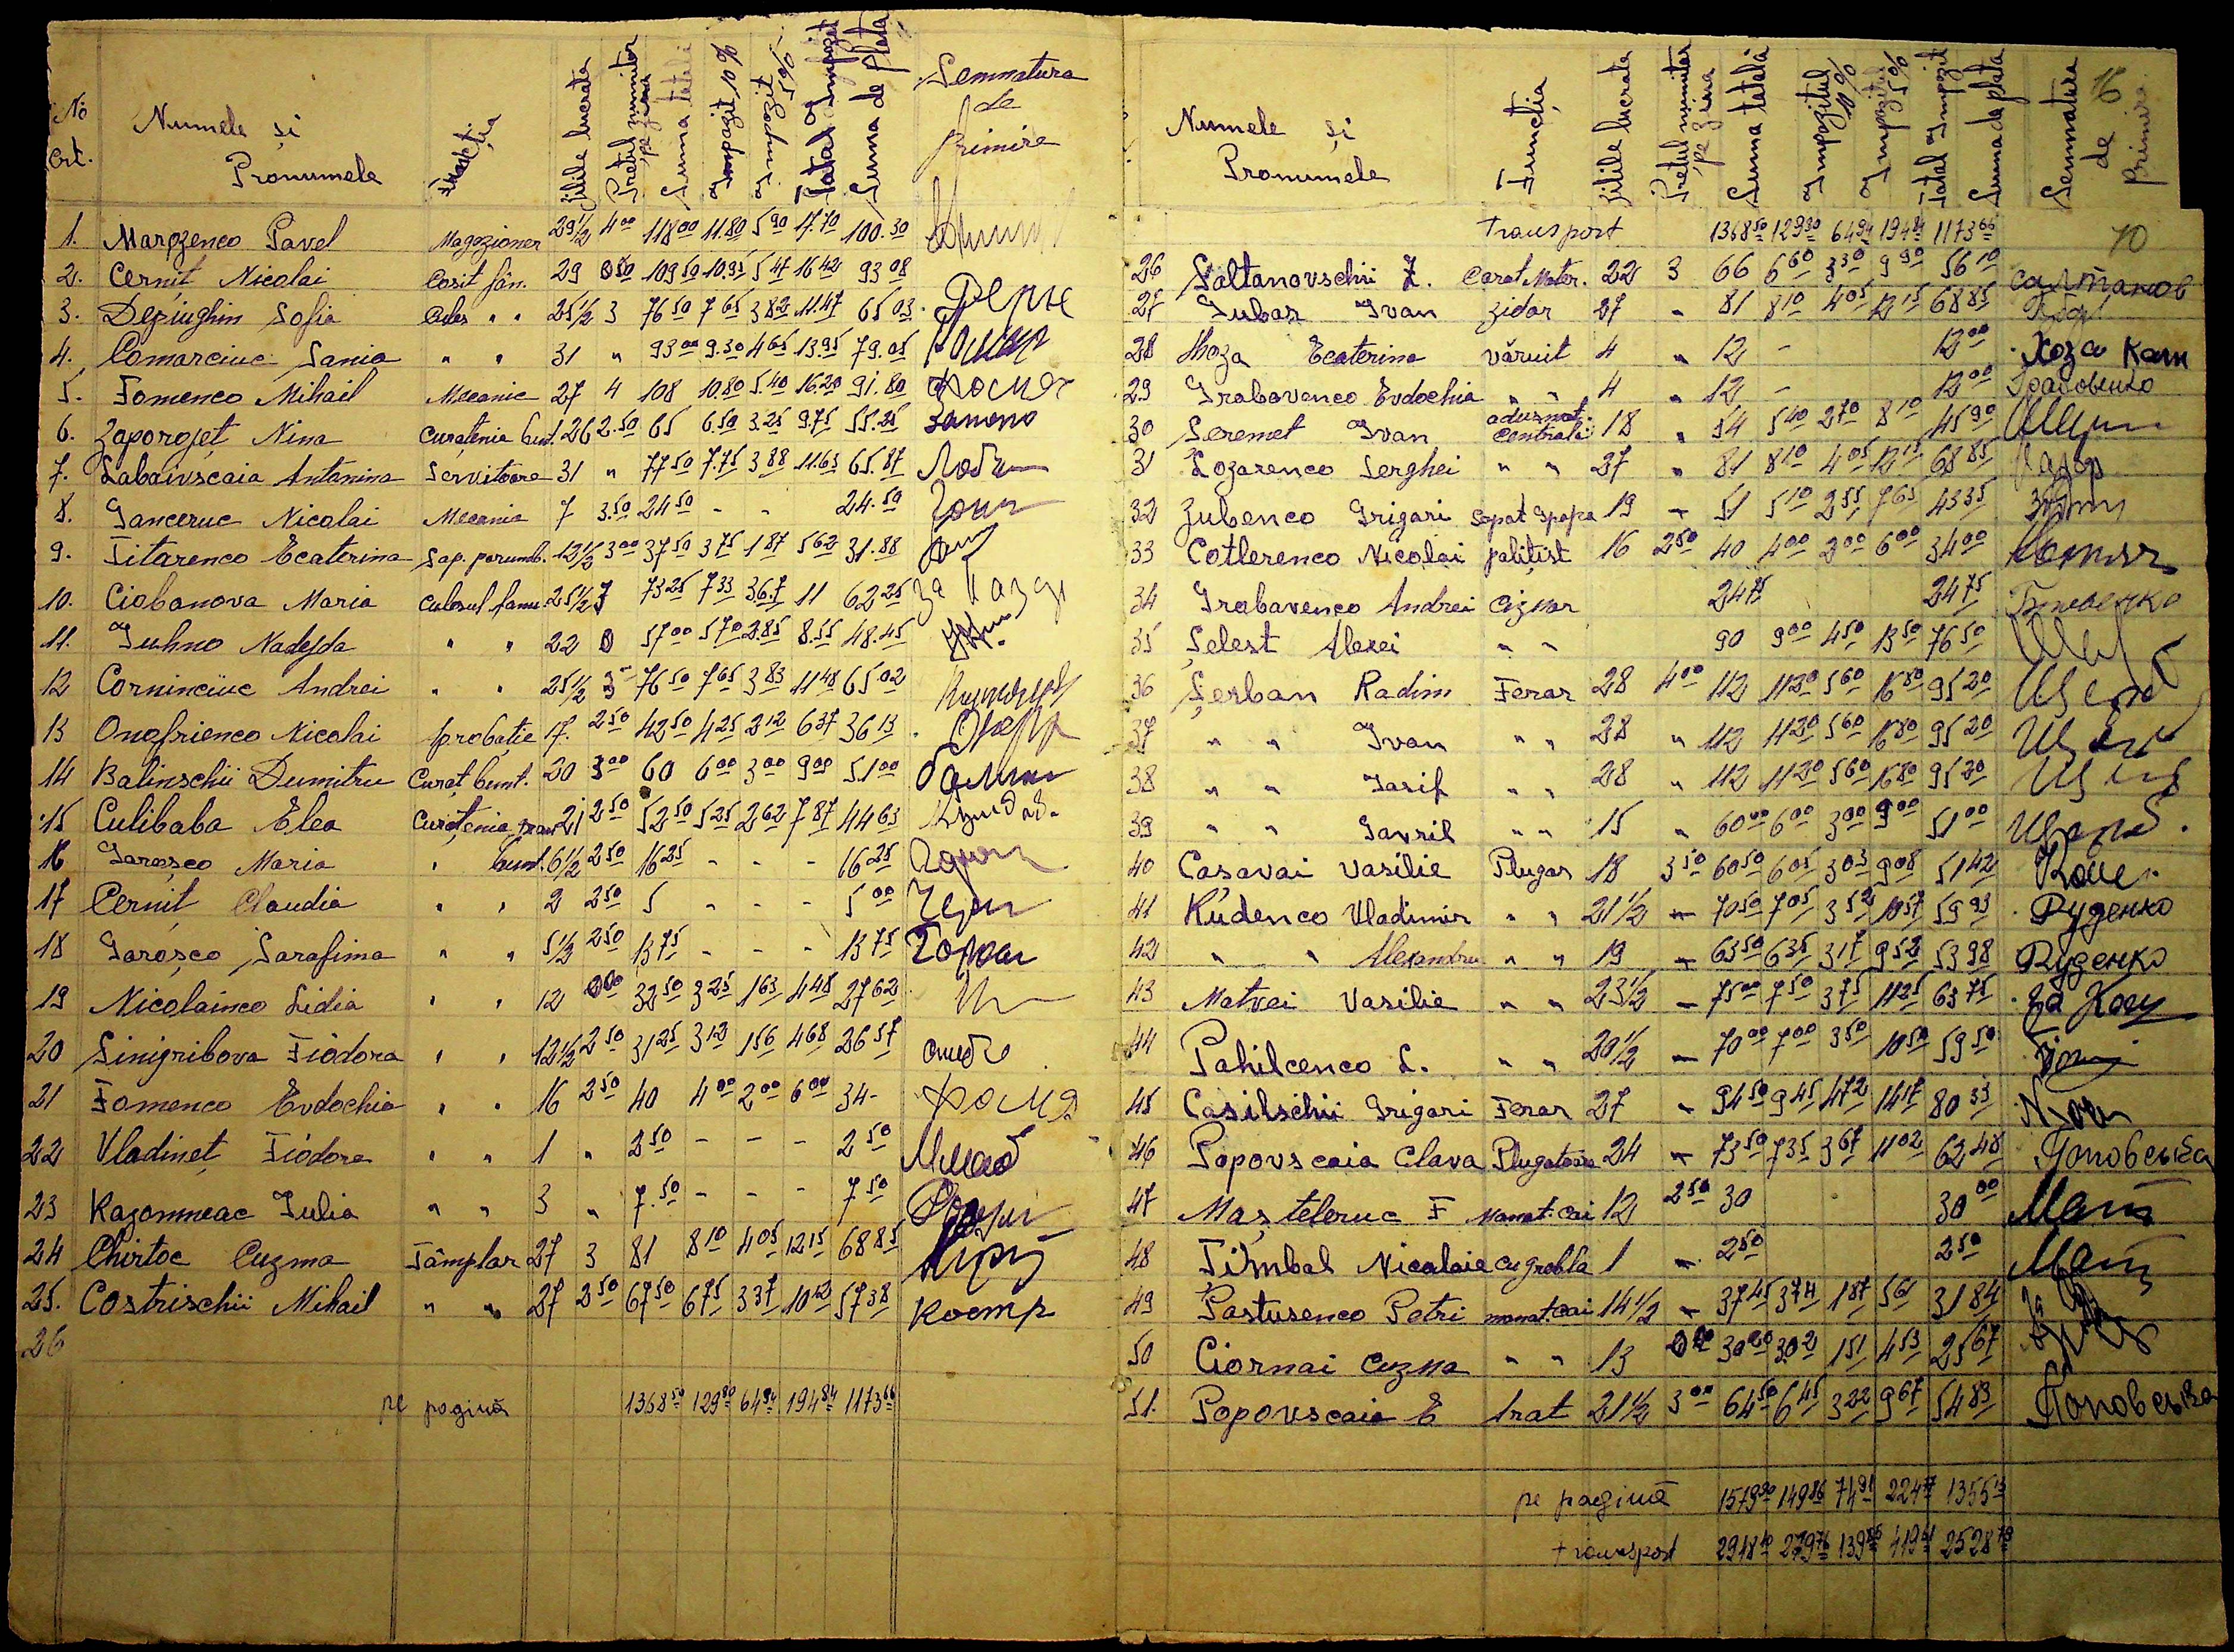 No crt. Numele și Pronumele Funcția Zilele lucrate Prețul muncitor pe ziua Suma totală Impozit 10% Impozit 5% Total Impozit Suma de plată Semnatura de primire
1. Marpzenco Pavel Magazioner 29½ 4 00 118 00 11.80 5 90 17.70 100.30
2. Cernit Nicolai Cosit fân. 29 109 50 10.95 5 47 16 42 93 08
3. Depiughin Sofia " " 25½ 3 76 50 7 65 3 82 11.47 65 03
4. Comarciuc Sania " " 31 " 93 00 9.30 4 65 13.95 79.05
5. Fomenco Mihail Mecanic 27 4 108 10.80 5.40 16.20 91.80 Фомен
6. Zaporojeț Nina Curațenia bunt. 26 2.50 65 6.50 3.25 9.75 55.25 запоро
7. Labaivscaia Antonina Servitoare 31 " 77 50 7.75 3 88 11.63 65.87
8. Ganceruc Nicolai Mecanic 7 3.50 24 50 - - 24.50
9. Titarenco Ecaterina Sap. porumb. 12½ 3 00 37 50 3 75 1 87 5 62 31.88
10. Ciobanova Maria Culesul fanu. 25½ 73 25 7 33 3 67 11 62 25
11. Juhno Nadejda " " 22 57 00 5 70 2.85 8.55 48.45
12 Corninciuc Andrei " " 25½ 3 76 50 7 65 3 83 11 48 65 02
13 Onofrienco Nicolai Aprobație 17. 2 50 42 50 4 25 2 12 6 37 36 13
14 Balinschii Dumitru Curaț bunt. 20 3 00 60 6 00 3 00 9 00 51 00
15 Culibaba Elea Curațenia gran 21 2 50 52 50 5 25 2 62 7 87 44 63
16 Garoșco Maria " bunt. 6½ 2 50 16 25 - - - 16 25
17 Cernit Claudia " " 2 2 50 5 - - - 5 00
18 Garoșco Sarafima " " 5½ 2 50 13 75 - - - 13 75
19 Nicolainco Lidia " " 12 32 50 3 25 1 63 4 48 27 62
20 Sinigribova Fiodora " " 12½ 2 50 31 25 3 12 1 56 4 68 26 57
21 Fomenco Evdochia " " 16 2 50 40 4 00 2 00 6 00 34-
22 Vladineț Fiodora " " 1 " 2 50 - - - 2 50
23 Kazomneac Iulia " " 3 " 7.50 - - - 7 50
24 Chirtoc Cuzma Tâmplar 27 3 81 8 10 4 05 12 15 68 85
25. Costrischii Mihail " " 27 2 50 67 50 6 75 3 37 10 12 57 38 костр
26
pe pagină 1368 50 129 90 64 94 194 84 1173 66
Numele și Pronumele Funcția Zilele lucrate Prețul muncitor pe ziua Suma totală Impozitul 10% Impozitul 5% Total Impozit Suma de plata Semnatura de Primire 16
transport 1368 50 129 90 64 94 194 84 1173 66 70
26 Saltanovschii Z. Carat. Mater. 22 3 66 6 60 3 30 9 90 56 10 салтанов
27 Gubar Ivan zidar 27 " 81 8 10 4 05 12 15 68 85
28 Hoza Ecaterina văruit 4 " 12 - 12 00 Хоза Кат
29 Grabovenco Evdochia " " 4 " 12 - 12 00
30 Seremet Ivan adusmat. Centrală 18 " 54 5 40 2 70 8 10 45 90
31 Lozarenco Serghei " " 27 " 81 8 10 4 05 12 15 68 85
32 Zubenco Grigari Sapat Groapa 19 - 51 5 10 2 55 7 65 43 35
33 Cotlerenco Nicolai palițist 16 2 50 40 4 00 2 00 6 00 34 00
34 Grabavenco Andrei Cizmar 24 75 24 75
35 Șelest Alexei " " 90 9 00 4 50 13 50 76 50
36 Șerban Radim Ferar 28 4 00 112 11 20 5 60 16 80 95 20
37 " " Ivan " " 28 " 112 11 20 5 60 16 80 95 20
38 " " Iasif " " 28 " 112 11 20 5 60 16 80 95 20
39 " " Gavril " " 15 " 60 00 6 00 3 00 9 00 51 00
40 Casavai Vasilie Plugar 18 3 50 60 50 6 05 3 03 9 08 51 42
41 Rudenco Vladimir " " 21½ - 70 50 7 05 3 52 10 57 59 93 Руденко
42 " " Alexandru " " 19 - 63 50 6 35 3 17 9 52 53 98 Руденко
43 Matvei Vasilie " " 23½ - 75 00 7 50 3 75 11 25 63 75
44 Pahilcenco L. " " 20½ - 70 00 7 00 3 50 10 50 59 50
45 Casilschii Grigari Ferar 27 " 94 50 9 45 4 72 14 17 80 33
46 Popovscaia Clava Plugatoare 24 - 73 50 7 35 3 67 11 02 62 48 Поповська
47 Maș teleruc F manat. cai 12 2 50 30 30 00
48 Timbal Nicolaie cu grebla 1 - 2 50 2 50
49 Pastusenco Petri manat. cai 14½ - 37 45 3 74 1 87 5 61 31 84
50 Ciornai Cuzma " " 13 30 20 3 02 1 51 4 53 25 67
51. Popovscaia E Arat 21½ 3 00 64 50 6 45 3 22 9 67 54 83 Поповська
pe pagină 1579 90 149 86 74 91 224 77 1355 13
transport 2948 40 279 76 139 85 419 61 2528 79